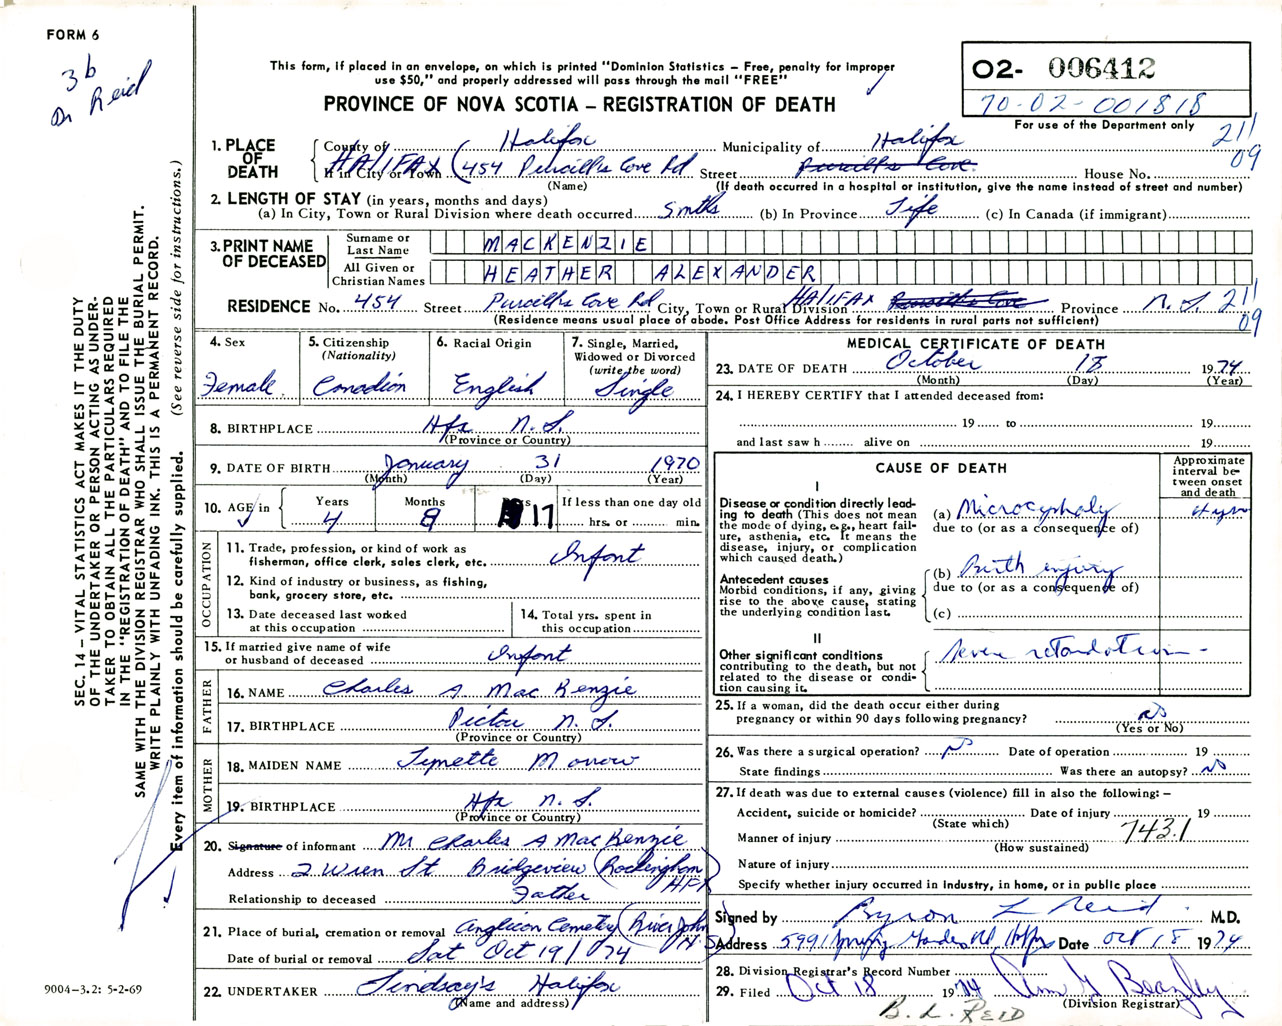 FORM 6
3b
Dr Reid
This form, if placed in an envelope, on which is printed "Dominion Statistics – Free, penalty for improper
use $50," and properly addressed will pass through the mail "FREE"
PROVINCE OF NOVA SCOTIA – REGISTRATION OF DEATH
O2- 006412
70-02-001818
For use of the Department only
211
09
1. PLACE OF DEATH
County of Halifax Municipality of Halifax
If in City or Town HALIFAX (454 Purcell's Cove Rd Street Purcell's Cove House No.
(Name) (If death occurred in a hospital or institution, give the name instead of street and number)
2. LENGTH OF STAY (in years, months and days)
(a) In City, Town or Rural Division where death occurred 5mths (b) In Province Life (c) In Canada (if immigrant)
3. PRINT NAME OF DECEASED
Surname or Last Name MACKENZIE
All Given or Christian Names HEATHER ALEXANDER
RESIDENCE No. 454 Street Purcell's Cove Rd City, Town or Rural Division HALIFAX Purcell's Cove Province N.S. 211
09
(Residence means usual place of abode. Post Office Address for residents in rural parts not sufficient)
SEC. 14 – VITAL STATISTICS ACT MAKES IT THE DUTY
OF THE UNDERTAKER OR PERSON ACTING AS UNDER-
TAKER TO OBTAIN ALL THE PARTICULARS REQUIRED
IN THE "REGISTRATION OF DEATH" AND TO FILE THE
SAME WITH THE DIVISION REGISTRAR WHO SHALL ISSUE THE BURIAL PERMIT.
WRITE PLAINLY WITH UNFADING INK. THIS IS A PERMANENT RECORD.
Every item of information should be carefully supplied. (See reverse side for instructions.)
4. Sex
Female
5. Citizenship
(Nationality)
Canadian
6. Racial Origin
English
7. Single, Married,
Widowed or Divorced
(write the word)
Single
8. BIRTHPLACE Hfx N.S.
(Province or Country)
9. DATE OF BIRTH January 31 1970
(Month) (Day) (Year)
10. AGE in
Years 4
Months 8
Days 17
If less than one day old
hrs. or min.
OCCUPATION
11. Trade, profession, or kind of work as
fisherman, office clerk, sales clerk, etc. Infant
12. Kind of industry or business, as fishing,
bank, grocery store, etc.
13. Date deceased last worked
at this occupation
14. Total yrs. spent in
this occupation
15. If married give name of wife
or husband of deceased Infant
FATHER
16. NAME Charles A MacKenzie
17. BIRTHPLACE Pictou N.S.
(Province or Country)
MOTHER
18. MAIDEN NAME Lynette Morrow
19. BIRTHPLACE Hfx N.S.
(Province or Country)
20. Signature of informant Mr Charles A MacKenzie
Address 2 Wren St Bridgeview (Rockingham
HFX)
Relationship to deceased Father
21. Place of burial, cremation or removal Anglican Cemetery (River John
N.S)
Date of burial or removal Sat Oct 19/74
22. UNDERTAKER Lindsay's Halifax
(Name and address)
9004-3.2: 5-2-69
MEDICAL CERTIFICATE OF DEATH
23. DATE OF DEATH October 18 1974
(Month) (Day) (Year)
24. I HEREBY CERTIFY that I attended deceased from:
19 to 19
and last saw h alive on 19
CAUSE OF DEATH
Approximate
interval be-
tween onset
and death
I
Disease or condition directly lead-
ing to death (This does not
mean
the mode of dying, e.g., heart fail-
ure, asthenia, etc. It means the
disease, injury, or complication
which caused death.)
(a) Microcephaly 4yrs
due to (or as a consequence of)
Antecedent causes
Morbid conditions, if any, giving
rise to the above cause, stating
the underlying condition last.
(b) Birth injury
due to (or as a consequence of)
(c)
II
Other significant conditions
contributing to the death, but not
related to the disease or condi-
tion causing it.
Severe retardation -
25. If a woman, did the death occur either during
pregnancy or within 90 days following pregnancy? No
(Yes or No)
26. Was there a surgical operation? No Date of operation 19
State findings Was there an autopsy? No
27. If death was due to external causes (violence) fill in also the following: –
Accident, suicide or homicide? Date of injury 19
(State which)
743.1
Manner of injury
(How sustained)
Nature of injury
Specify whether injury occurred in Industry, in home, or in public place
Signed by Byron L Reid M.D.
Address 5991 Spring Garden Rd, Date Oct 18 1974
28. Division Registrar's Record Number
29. Filed Oct 18 1974
(Division Registrar)
B. L. REID